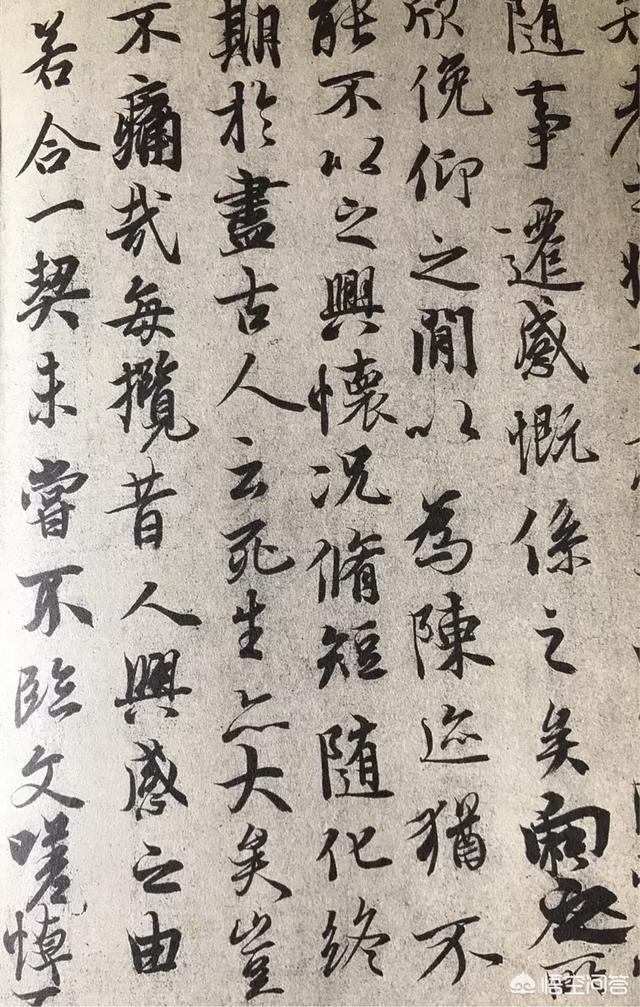 隨事遷感慨係之矣向之所
欣俛仰之間以為陳迹猶不
能不以之興懷況脩短隨化終
期於盡古人云死生亦大矣豈
不痛哉每攬昔人興感之由
若合一契未嘗不臨文嗟悼不
悟空问答